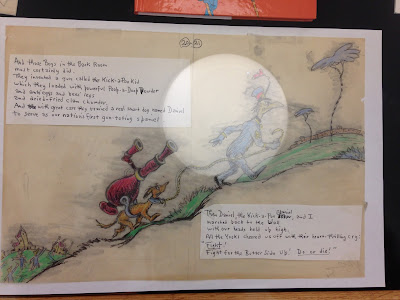 20-21
And those Boys in the Back Room
most certainly did.
They invented a gun called the Kick-a-Poo Kid
which they loaded with powerful Poo-a-Doo Powder
and ants' eggs and bees' legs
and dried-fried clam chowder.
And with great care they trained a real smart dog named Daniel
to serve as our nation's first gun-toting spaniel.
Then Daniel, the Kick-a-Poo Spaniel, and I
marched back to the
with our heads held up high.
All the Yooks cheered us off with their heart-thrilling cry:
"Fight!
Fight for the Butter Side Up! Do or die!"